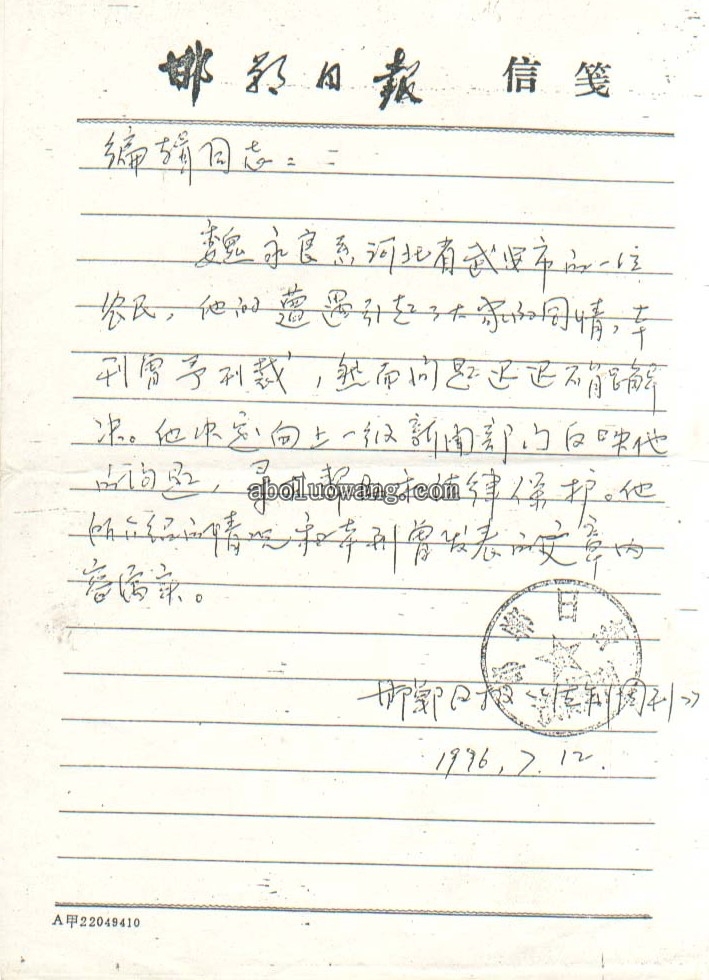 邯郸日報 信笺
编辑同志：
魏永良系河北省武安市的一位
农民，他的遭遇引起了大家的同情，本
刊曾予刊载，然而问题迟迟不能解
决。他决定向上一级新闻部门反映他
的问题，寻求帮助和法律保护。他
所介绍的情况和本刊曾发表的文章内
容属实。
邯郸日报《法制周刊》
1996.7.12.
A甲22049410
aboluowang.com